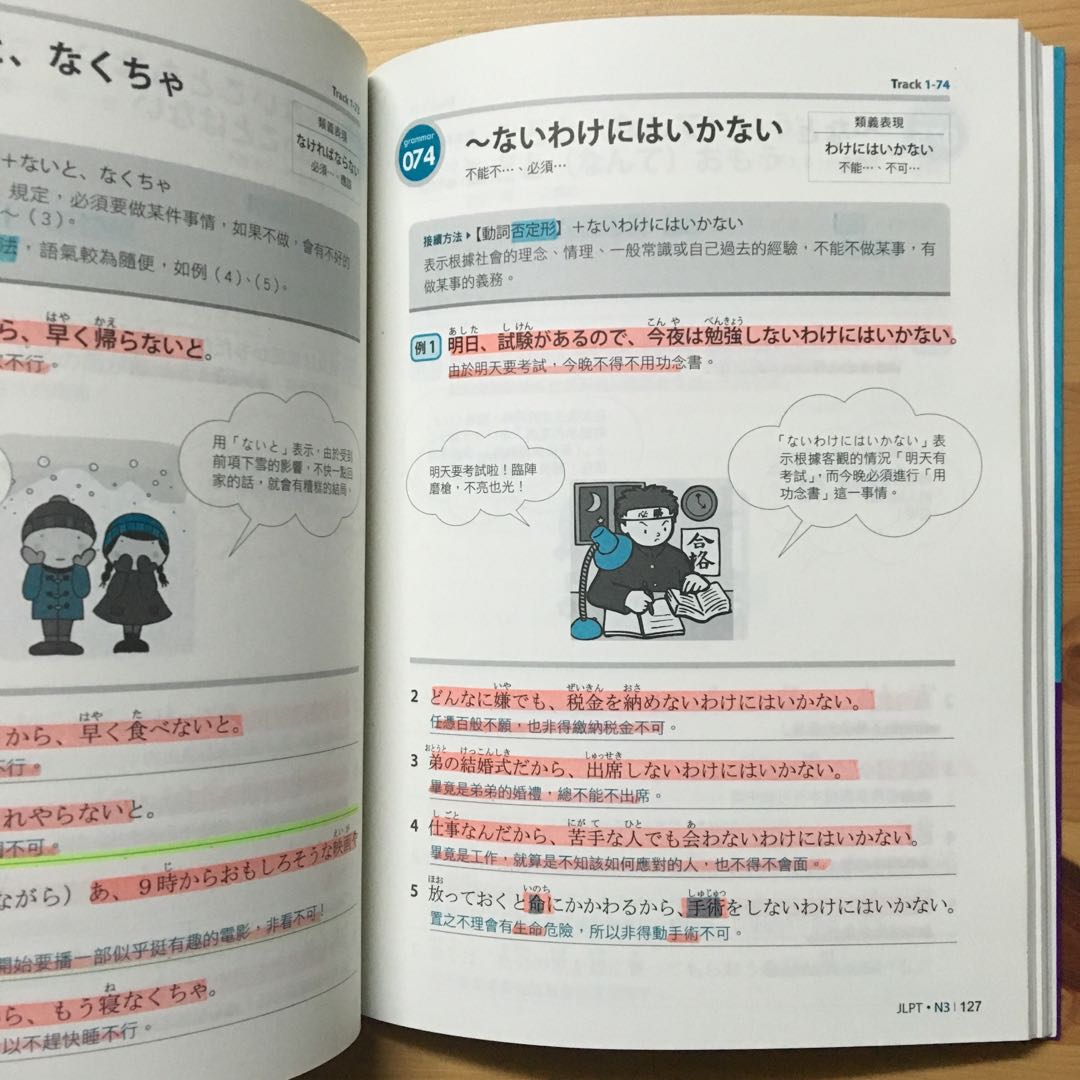 、なくちゃ
Track 1-73
類義表現
なければならない
必須…、應該
＋ないと、なくちゃ
規定，必須要做某件事情，如果不做，會有不好的
～（3）。
法，語氣較為隨便，如例（4）、（5）。
はや かえ
ら、早く帰らないと。
不行。
用「ないと」表示，由於受到
前項下雪的影響，不快一點回
家的話，就會有糟糕的結局。
はや た
から、早く食べないと。
不行。
れやらないと。
不可。
に えいが
ながら）あ、9時からおもしろそうな映画や
開始要播一部似乎挺有趣的電影，非看不可！
ね
ら、もう寝なくちゃ。
以不趕快睡不行。
Track 1-74
grammar
074
～ないわけにはいかない
不能不…、必須…
類義表現
わけにはいかない
不能…、不可…
接續方法▶【動詞否定形】＋ないわけにはいかない
表示根據社會的理念、情理、一般常識或自己過去的經驗，不能不做某事，有
做某事的義務。
あした しけん こんや べんきょう
例1 明日、試験があるので、今夜は勉強しないわけにはいかない。
由於明天要考試，今晚不得不用功念書。
明天要考試啦！臨陣
磨槍，不亮也光！
「ないわけにはいかない」表
示根據客觀的情況「明天有
考試」，而今晚必須進行「用
功念書」這一事情。
必勝
合格
いや ぜいきん おさ
2 どんなに嫌でも、税金を納めないわけにはいかない。
任憑百般不願，也非得繳納稅金不可。
おとうと けっこんしき しゅっせき
3 弟の結婚式だから、出席しないわけにはいかない。
畢竟是弟弟的婚禮，總不能不出席。
しごと にがて ひと あ
4 仕事なんだから、苦手な人でも会わないわけにはいかない。
畢竟是工作，就算是不知該如何應對的人，也不得不會面。
ほお いのち しゅじゅつ
5 放っておくと命にかかわるから、手術をしないわけにはいかない。
置之不理會有生命危險，所以非得動手術不可。
JLPT・N3 | 127